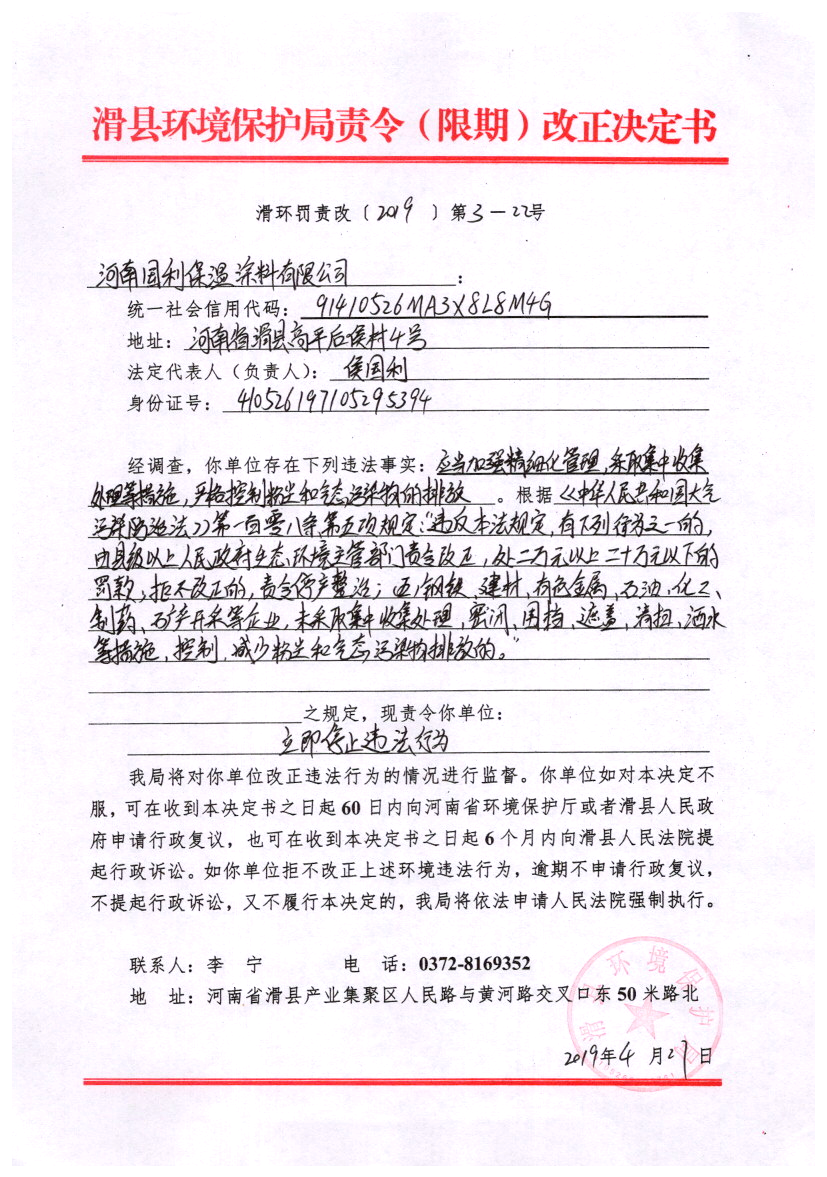 滑县环境保护局责令（限期）改正决定书
滑环罚责改〔2019〕第3－22号
河南国利保温涂料有限公司：
统一社会信用代码：91410526MA3X8L8M4G
地址：河南省滑县高平后侯村4号
法定代表人（负责人）：侯国利
身份证号：410526197105295394
经调查，你单位存在下列违法事实：应当加强精细化管理，采取集中收集
处理等措施，严格控制粉尘和气态污染物的排放。根据《中华人民共和国大气
污染防治法》第一百零八条第五项规定：“违反本法规定，有下列行为之一的，
由县级以上人民政府生态环境主管部门责令改正，处二万元以上二十万元以下的
罚款，拒不改正的，责令停产整治；（五）钢铁、建材、有色金属、石油、化工、
制药、矿产开采等企业，未采取集中收集处理、密闭、围挡、遮盖、清扫、洒水
等措施，控制、减少粉尘和气态污染物排放的。”
之规定，现责令你单位：
立即停止违法行为
我局将对你单位改正违法行为的情况进行监督。你单位如对本决定不
服，可在收到本决定书之日起60日内向河南省环境保护厅或者滑县人民政
府申请行政复议，也可在收到本决定书之日起6个月内向滑县人民法院提
起行政诉讼。如你单位拒不改正上述环境违法行为，逾期不申请行政复议，
不提起行政诉讼，又不履行本决定的，我局将依法申请人民法院强制执行。
联系人：李 宁 电 话：0372-8169352
地 址：河南省滑县产业集聚区人民路与黄河路交叉口东50米路北
滑县环境保护局
2019年4月27日